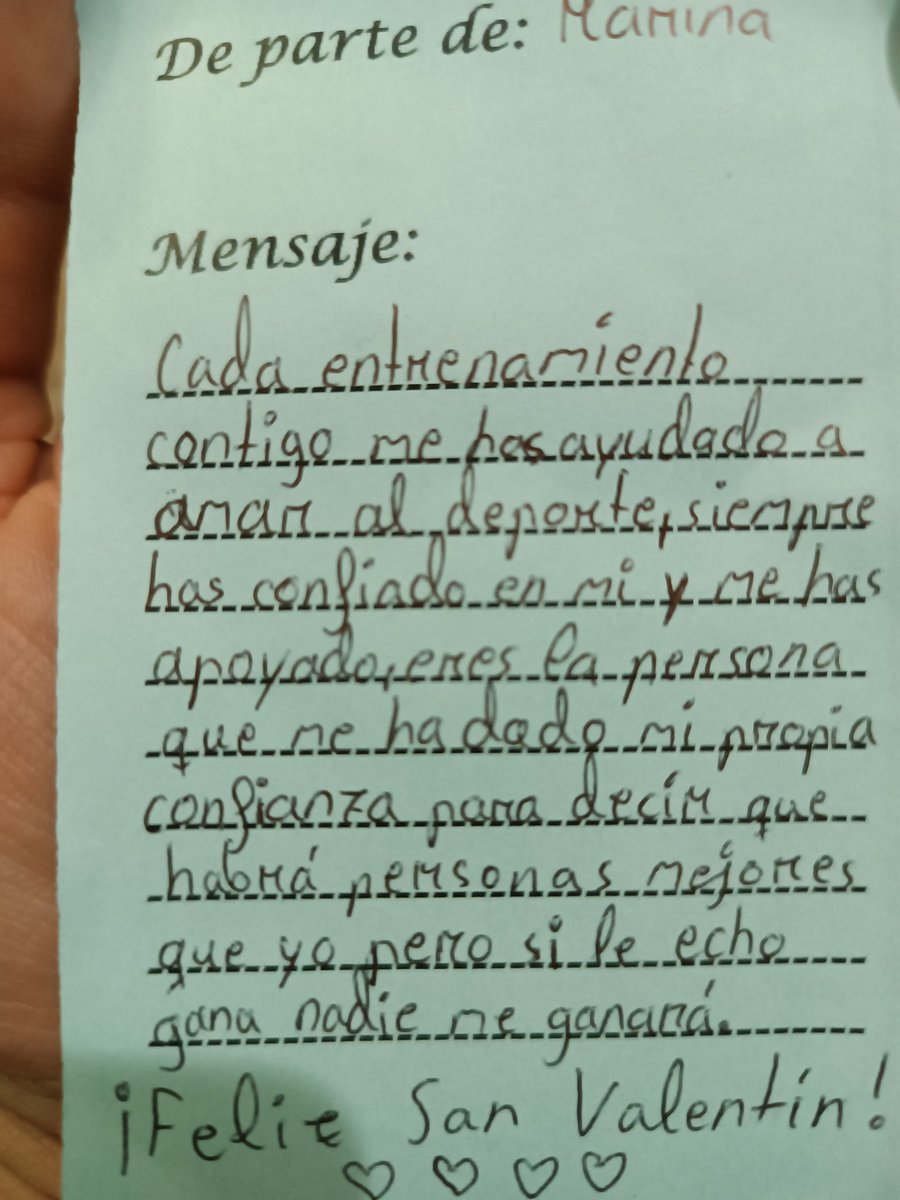 De parte de: Marina
Mensaje:
Cada entrenamiento
contigo me has ayudado a
amar al deporte, siempre
has confiado en mi y me has
apoyado, eres la persona
que me ha dado mi propia
confianza para decir que
habrá personas mejores
que yo pero si le echo
gana nadie me ganará.
¡Feliz San Valentín!